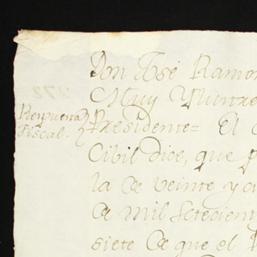 Don José Ramo
Muy
Respuesta
Fiscal.
Presidente= El
Civil dice, que p
la de veinte y o
de Mil Setecient
siete de que el